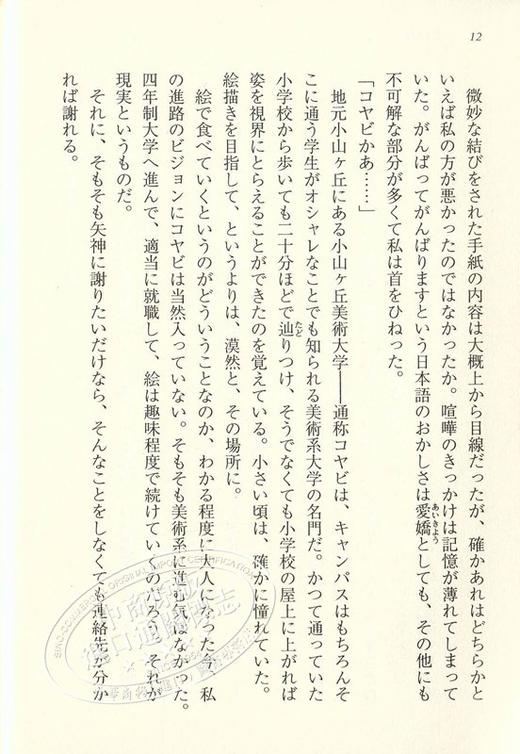 12
微妙な結びをされた手紙の内容は大概上から目線だったが、確かあれはどちらかと
いえば私の方が悪かったのではなかったか。喧嘩のきっかけは記憶が薄れてしまって
いた。がんばってがんばりますという日本語のおかしさは愛嬌としても、その他にも
不可解な部分が多くて私は首をひねった。
「コヤビかあ……」
地元小山ヶ丘にある小山ヶ丘美術大学――通称コヤビは、キャンパスはもちろんそ
こに通う学生がオシャレなことでも知られる美術系大学の名門だ。かつて通っていた
小学校から歩いても二十分ほどで辿りつけ、そうでなくても小学校の屋上に上がれば
姿を視界にとらえることができたのを覚えている。小さい頃は、確かに憧れていた。
絵描きを目指して、というよりは、漠然と、その場所に。
絵で食べていくというのがどういうことなのか、わかる程度に大人になった今、私
の進路のビジョンにコヤビは当然入っていない。そもそも美術系に進む気はなかった。
四年制大学へ進んで、適当に就職して、絵は趣味程度で続けていくのだろう。それが
現実というものだ。
それに、そもそも矢神に謝りたいだけなら、そんなことをしなくても連絡先が分か
れば謝れる。